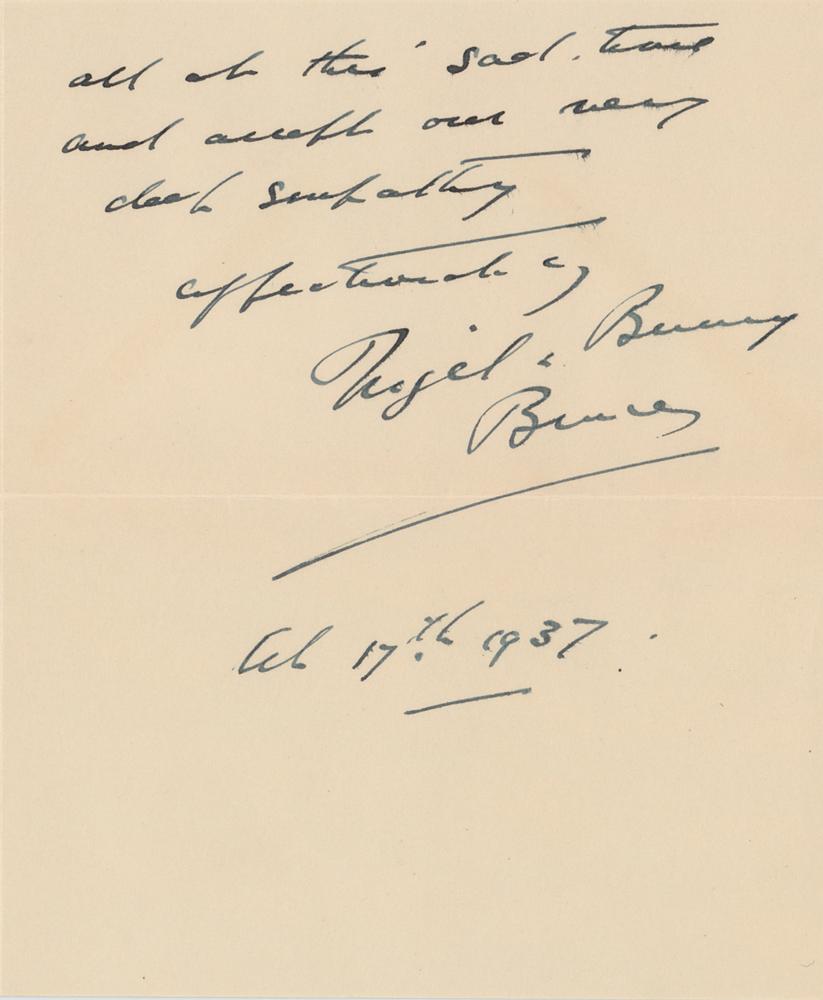 all at this sad time
and accept our very
deep sympathy
affectionately
Nigel & Bunny
Bruce
Feb 17th 1937.